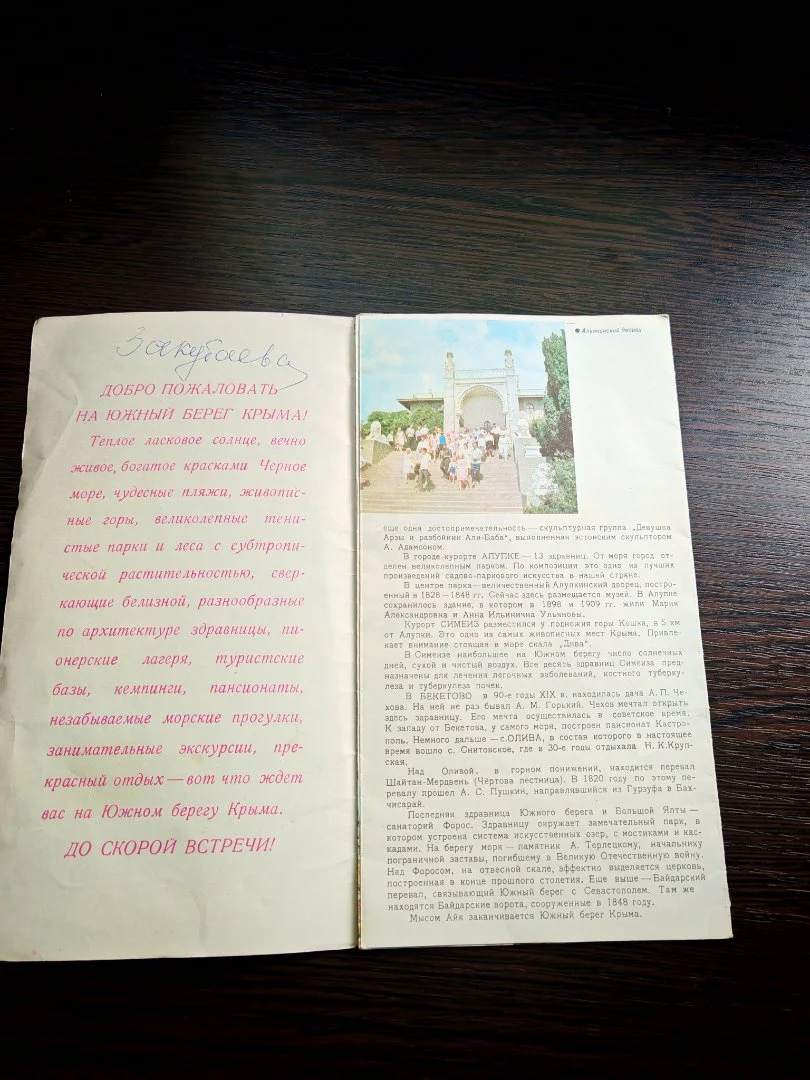 Закутаева
ДОБРО ПОЖАЛОВАТЬ
НА ЮЖНЫЙ БЕРЕГ КРЫМА!
Теплое ласковое солнце, вечно
живое, богатое красками Черное
море, чудесные пляжи, живопис-
ные горы, великолепные тени-
стые парки и леса с субтропи-
ческой растительностью, свер-
кающие белизной, разнообразные
по архитектуре здравницы, пи-
онерские лагеря, туристские
базы, кемпинги, пансионаты,
незабываемые морские прогулки,
занимательные экскурсии, пре-
красный отдых — вот что ждет
вас на Южном берегу Крыма.
ДО СКОРОЙ ВСТРЕЧИ!
Алупкинский дворец
еще одна достопримечательность — скульптурная группа „Девушка
Арзы и разбойник Али-Баба", выполненная эстонским скульптором
А. Адамсоном.
В городе-курорте АЛУПКЕ — 13 здравниц. От моря город от-
делен великолепным парком. По композиции это одно из лучших
произведений садово-паркового искусства в нашей стране.
В центре парка — величественный Алупкинский дворец, постро-
енный в 1828 — 1848 гг. Сейчас здесь размещается музей. В Алупке
сохранилось здание, в котором в 1898 и 1909 гг. жили Мария
Александровна и Анна Ильинична Ульяновы.
Курорт СИМЕИЗ разместился у подножия горы Кошка, в 5 км
от Алупки. Это одно из самых живописных мест Крыма. Привле-
кает внимание стоящая в море скала „Дива".
В Симеизе наибольшее на Южном берегу число солнечных
дней, сухой и чистый воздух. Все десять здравниц Симеиза пред-
назначены для лечения легочных заболеваний, костного туберку-
леза и туберкулеза почек.
В БЕКЕТОВО в 90-е годы XIX в. находилась дача А. П. Че-
хова. На ней не раз бывал А. М. Горький. Чехов мечтал открыть
здесь здравницу. Его мечта осуществилась в советское время.
К западу от Бекетова, у самого моря, построен пансионат Кастро-
поль. Немного дальше — с. ОЛИВА, в состав которого в настоящее
время вошло с. Снитовское, где в 30-е годы отдыхала Н. К. Круп-
ская.
Над Оливой, в горном понижении, находится перевал
Шайтан-Мердвень (Чёртова лестница). В 1820 году по этому пе-
ревалу прошел А. С. Пушкин, направлявшийся из Гурзуфа в Бах-
чисарай.
Последняя здравница Южного берега и Большой Ялты —
санаторий Форос. Здравницу окружает замечательный парк, в
котором устроена система искусственных озер, с мостиками и кас-
кадами. На берегу моря — памятник А. Терлецкому, начальнику
пограничной заставы, погибшему в Великую Отечественную войну.
Над Форосом, на отвесной скале, эффектно выделяется церковь,
построенная в конце прошлого столетия. Еще выше — Байдарский
перевал, связывающий Южный берег с Севастополем. Там же
находятся Байдарские ворота, сооруженные в 1848 году.
Мысом Айя заканчивается Южный берег Крыма.